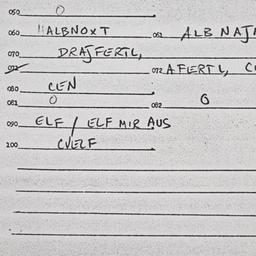 050 O
060 HALBNOXT 061 ALB NAJ
070 DRAJFERTL,
072 072 AFLERTL, C
080 CEN
081 O 082 O
090 ELF / ELF MIR AUS
100 CVELF